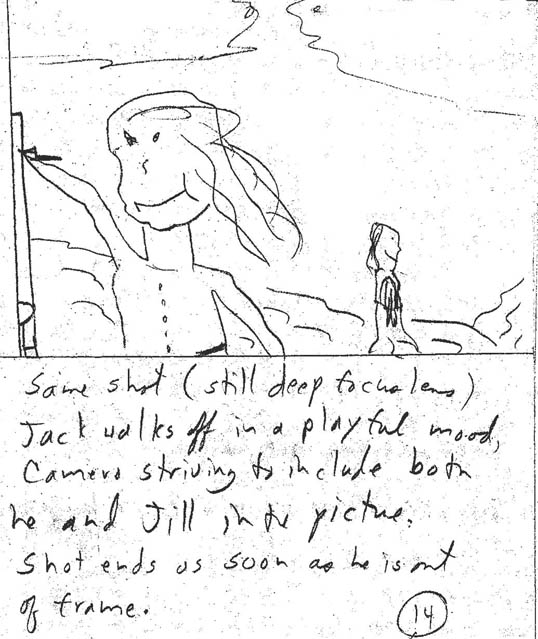 Same shot (still deep focus lens)
Jack walks off in a playful mood,
Camera striving to include both
he and Jill in the picture.
Shot ends as soon as he is out
of frame.
14